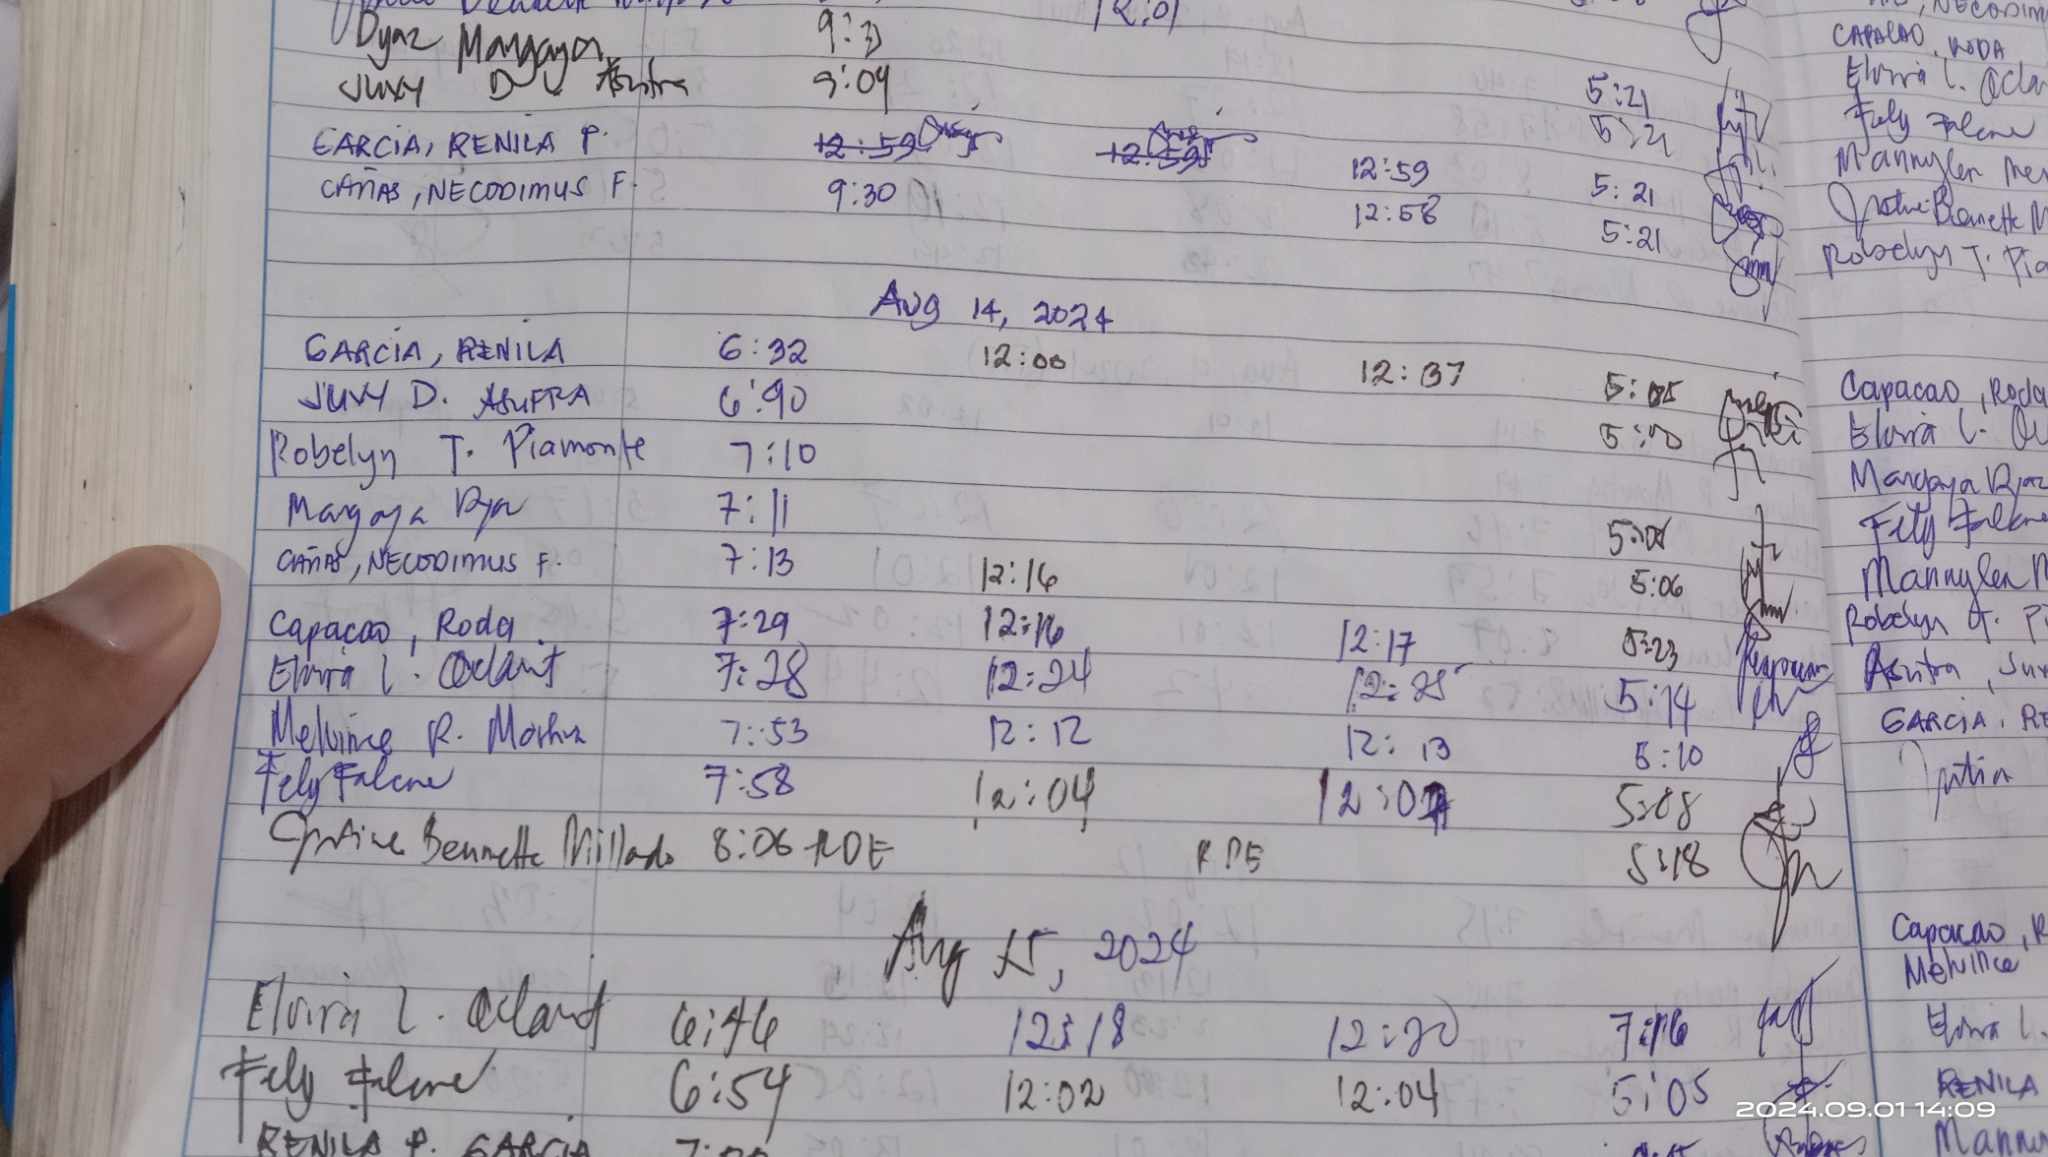 12:01
Dyaz Mangaya 9:31
JUVY D. Asufra 9:04 5:21
GARCIA, RENILA P. 12:59 12:59 12:59 5:21
CAÑAS, NECODIMUS F. 9:30 12:58 5:21
5:21
Aug 14, 2024
GARCIA, RENILA 6:32 12:00 12:37 5:05
JUVY D. ASUFRA 6:40 5:00
Robelyn T. Piamonte 7:10
Mangaya Dya 7:11 5:01
CAÑAS, NECODIMUS F. 7:13 12:16 5:06
Capacao, Roda 7:29 12:16 12:17 5:23
Elvira L. Oclarit 7:28 12:24 12:25 5:14
Melvince R. 7:53 12:12 12:13 5:10
Fely Falcne 7:58 12:04 12:07 5:08
Justine Bennette Millado 8:06 RDE RDE 5:18
Aug 15, 2024
Elvira L. Oclarit 6:46 12:18 12:20 7:16
Fely Falcne 6:54 12:02 12:04 5:05
RENILA P. GARCIA
NECODIM
CAPACAO, RODA
Elvira L. Ocla
Fely Falcne
Mannylen
Justine Bennette M
Robelyn T. Pia
Capacao, Roda
Elvira L.
Mangaya Dyaz
Fely Falcne
Mannylen M
Robelyn T. Pi
Asufra, Juv
GARCIA, RE
Justin
Capacao, R
Melvince
Elvira L.
RENILA
Manny
2024.09.01 14:09